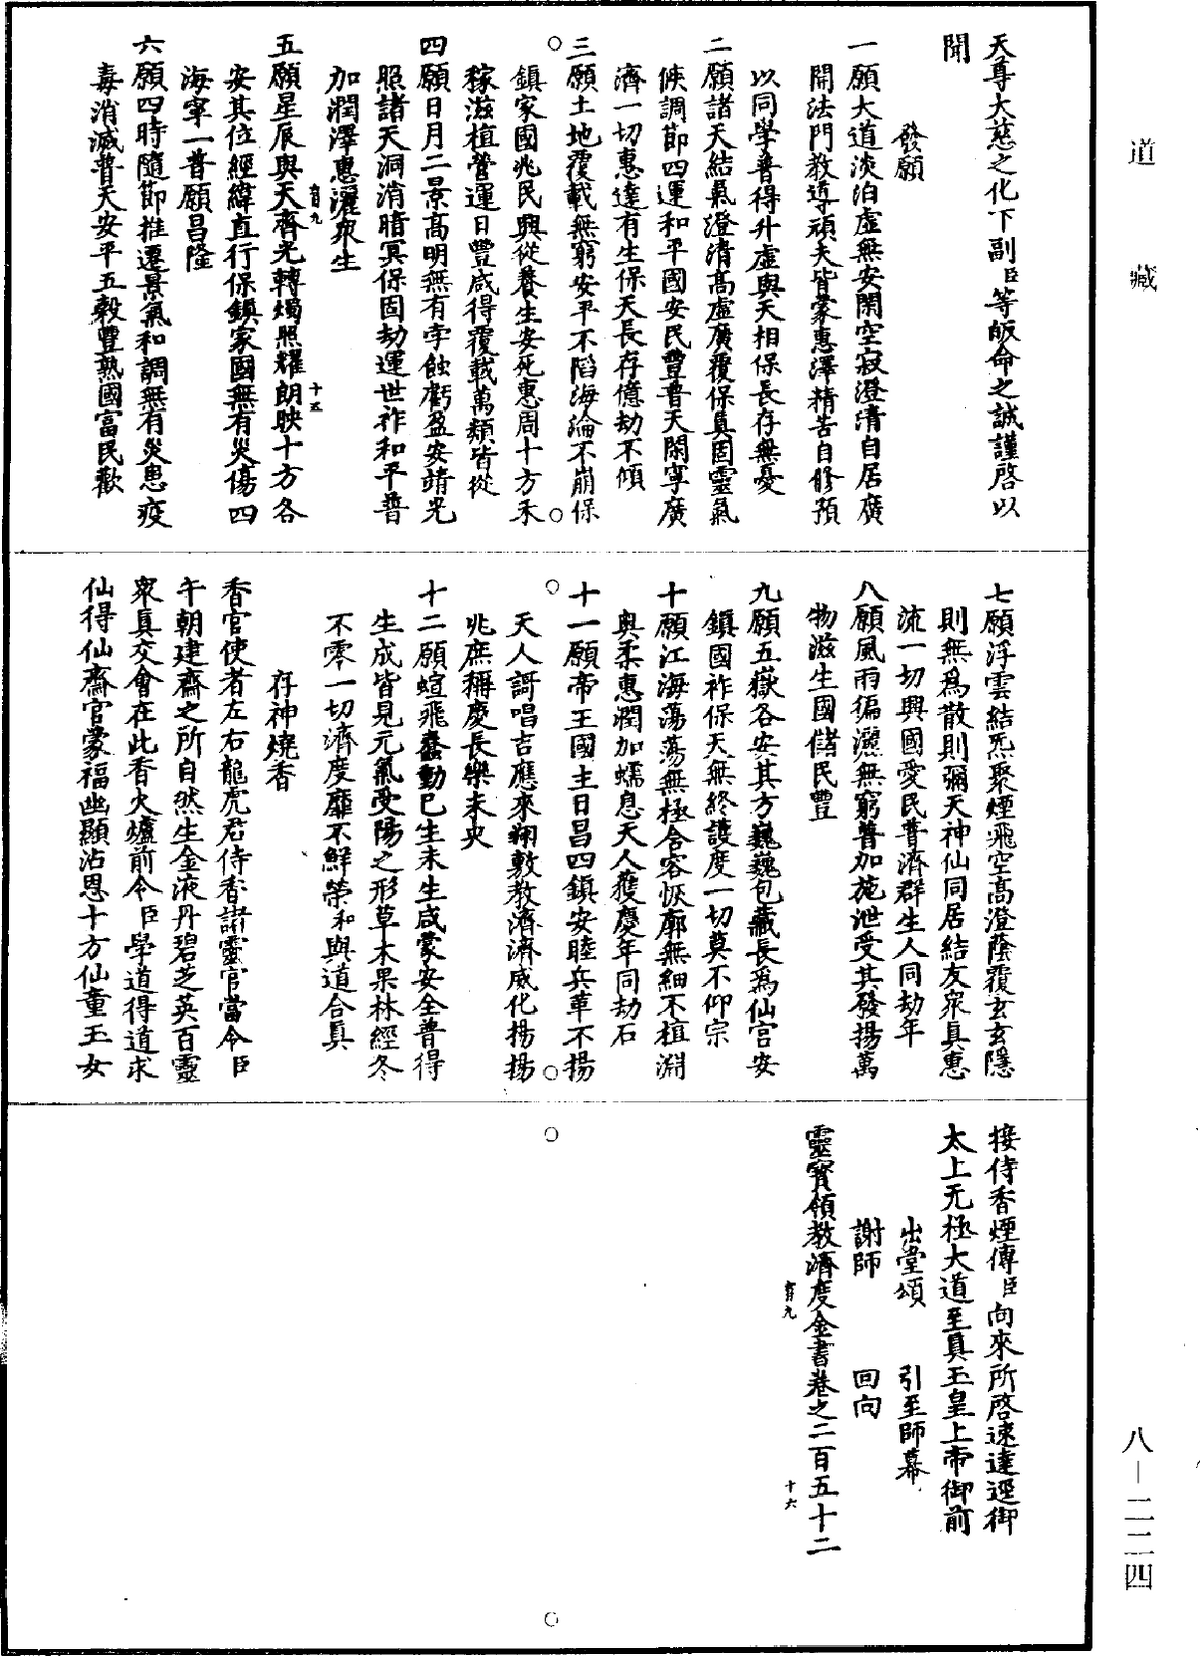 道藏
天尊大慈之化下副臣等皈命之誠謹啓以
聞
發願
一願大道淡泊虛無安閑空寂澄清自居廣
開法門教導頑夫皆蒙惠澤精苦自修預
以同學普得升虛與天相保長存無憂
二願諸天結氣澄清高虛廣覆保真固靈氣
候調節四運和平國安民豐普天閑寧廣
濟一切惠達有生保天長存億劫不傾
三願土地覆載無窮安平不陷海淪不崩保
鎮家國兆民興從養生安死惠周十方禾
稼滋植營運日豐咸得覆載萬類皆從
四願日月二景高明無有孛蝕虧盈安靖光
照諸天洞消暗冥保固劫運世祚和平普
加潤澤惠灑衆生
五願星辰與天齊光轉燭照耀朗映十方各
安其位經緯直行保鎮家國無有災傷四
海寧一普願昌隆
六願四時隨節推遷景氣和調無有災患疫
毒消滅普天安平五穀豐熟國富民歡
十五
七願浮雲結炁聚煙飛空高澄蔭覆玄玄隱
則無爲散則彌天神仙同居結友衆真惠
流一切興國愛民普濟群生人同劫年
八願風雨徧灑無窮普加施泄受其發揚萬
物滋生國儲民豐
九願五嶽各安其方巍巍包藏長爲仙宮安
鎮國祚保天無終護度一切莫不仰宗
十願江海蕩蕩無極含容恢廓無細不植淵
奥柔惠潤加蠕息天人獲慶年同劫石
十一願帝王國主日昌四鎮安睦兵革不揚
天人謌唱吉應來翔敷教濟濟威化揚揚
兆庶稱慶長樂未央
十二願蝖飛蠢動已生未生咸蒙安全普得
生成皆見元氣受陽之形草木果林經冬
不零一切濟度靡不鮮榮和與道合真
存神燒香
香官使者左右龍虎君侍香諸靈官當令臣
午朝建齋之所自然生金液丹碧芝英百靈
衆真交會在此香火爐前令臣學道得道求
仙得仙齋官蒙福幽顯沾恩十方仙童玉女
接侍香煙傳臣向來所啓速達逕御
太上无極大道至真玉皇上帝御前
出堂頌　引至師幕
謝師　回向
靈寶領教濟度金書卷之二百五十二
十六
八－二二四